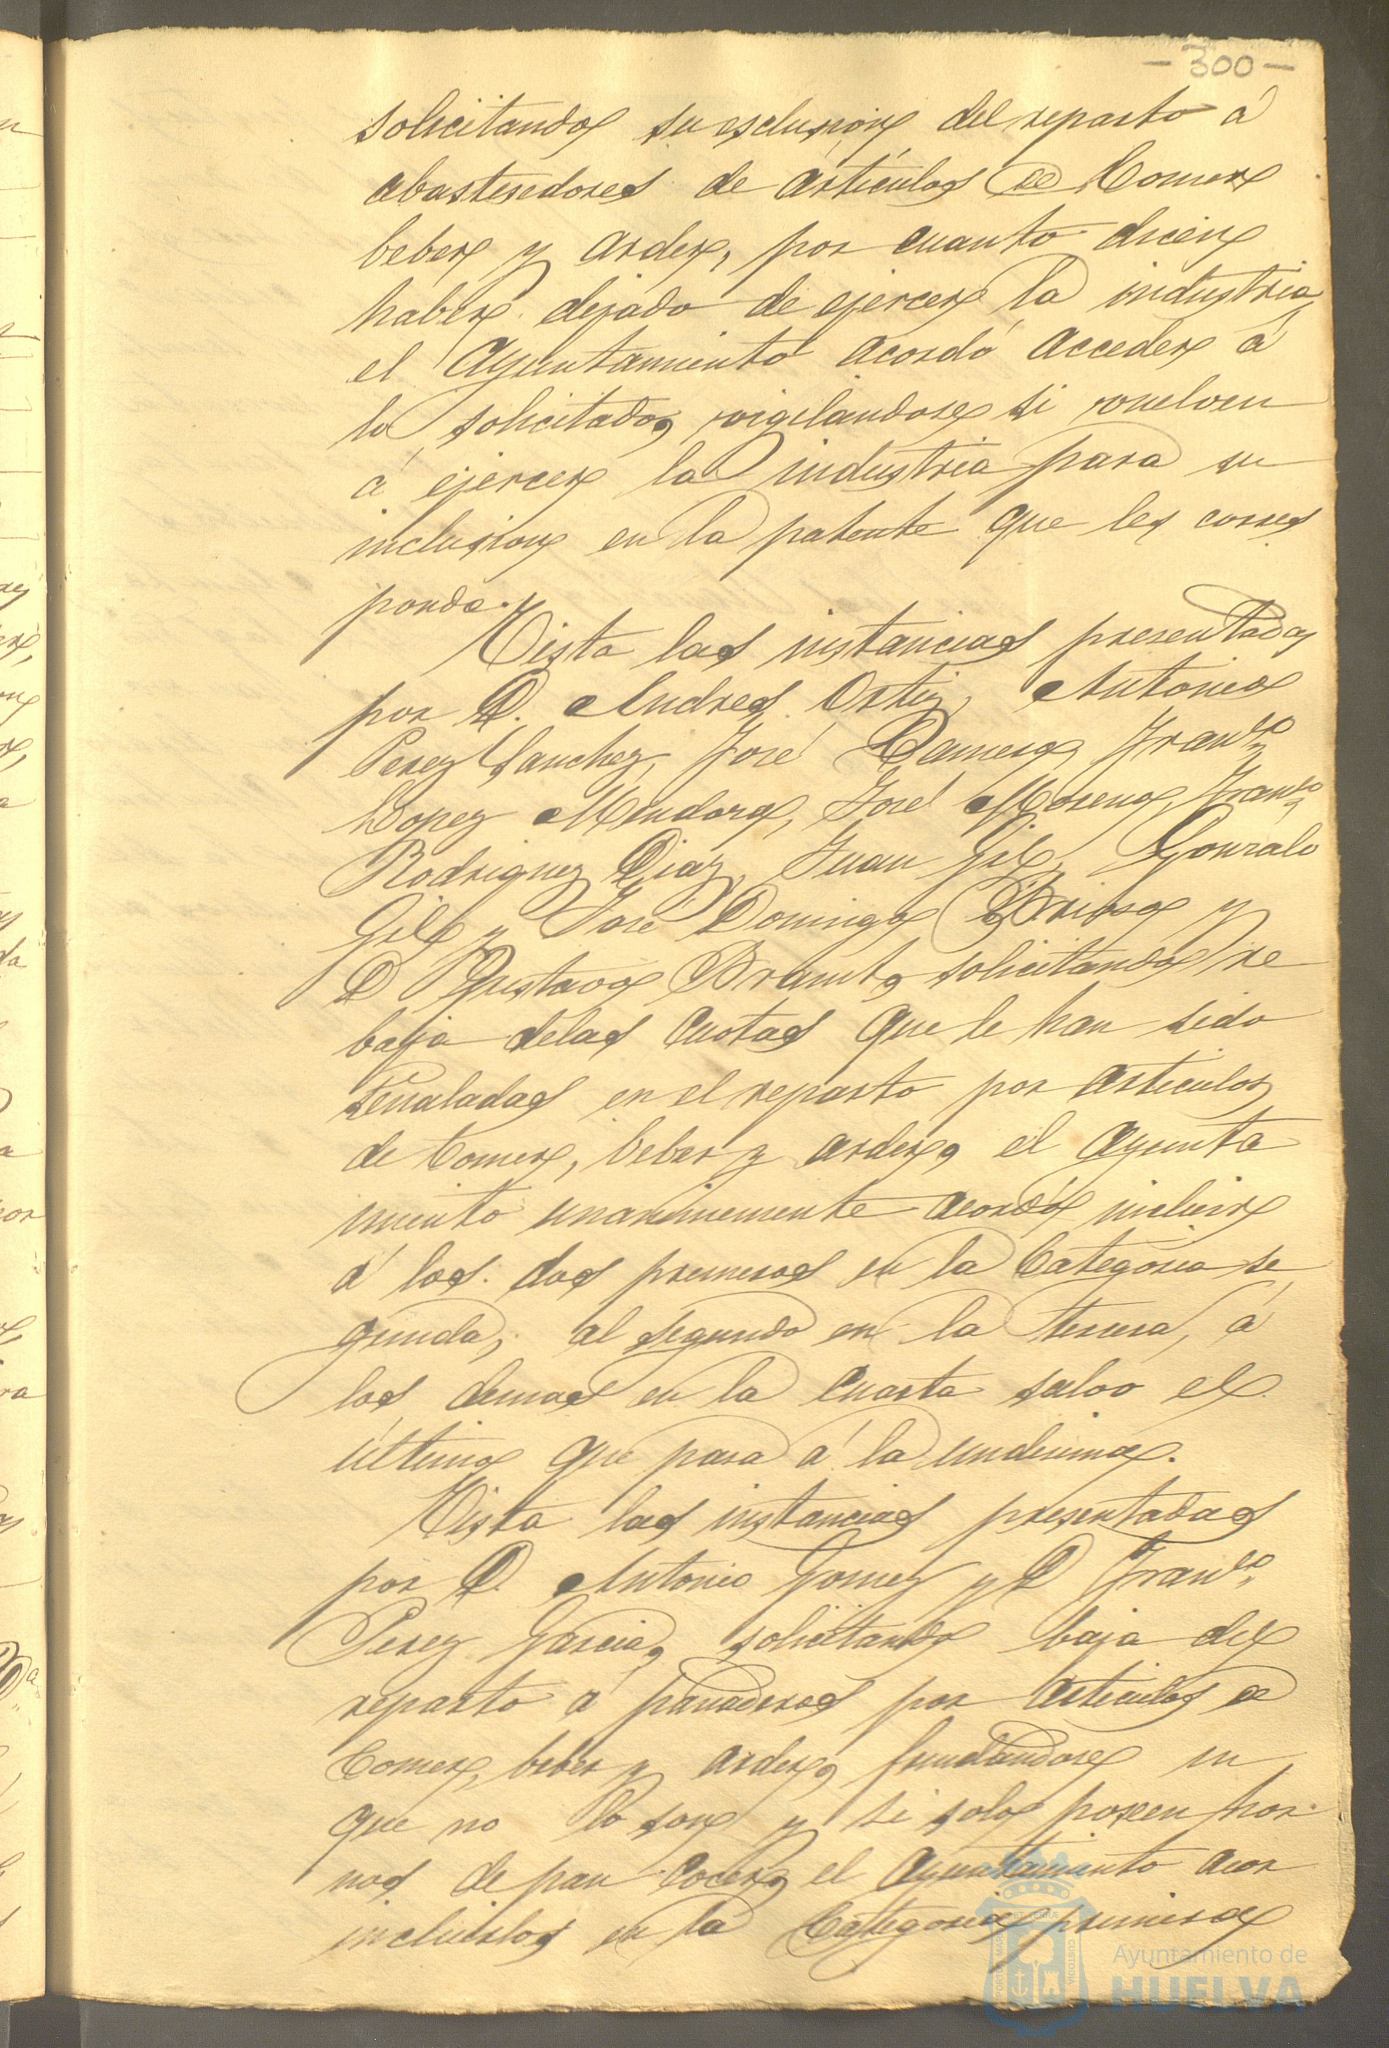 -300-
solicitando su esclusion del reparto á
abastesedores de artículos de Comer
beber y arder, por cuanto dicen
haber dejado de ejercer la industria,
el Ayuntamiento acordó acceder á
lo solicitado, vigilandose si vuelven
á ejercer la industria para su
inclusion en la patente que les corres
ponda.
Vista las instancias presentadas
por D. Andres Ortiz, Antonio
Perez Sanchez, José Romero, Franco
Lopez Mendoza, José Moreno, Franco
Rodriguez Diaz, Juan Gil, Gonzalo
Gil y José Domingo Brioso y
D Gustavo Bramt, solicitando re
baja delas Cuotas que le han sido
señaladas en el reparto por articulos
de Comer, beber y arder, el Ayunta
miento unanimemente acordó incluir
á los dos primeros en la Categoria se
gunda, al segundo en la tercera, á
los demas en la Cuarta salvo el
último que pasa á la undesima.
Vista las instancias presentadas
por D. Antonio Gomez y D Franco
Perez Garcia, solicitando baja del
reparto á panaderos por articulos de
Comer, beber y arder, fundandose en
que no lo son y si solo poseen hor
nos de pan cocer, el Ayuntamiento acor
incluirlos en la Categoria primera
Ayuntamiento de
HUELVA